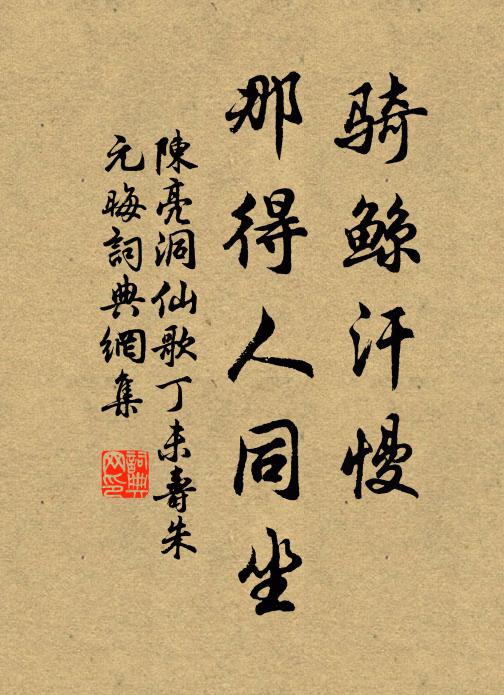 骑鲸汗慢
那得人同坐
陳亮洞仙歌丁未壽朱
元晦詞典網集
詞典网印